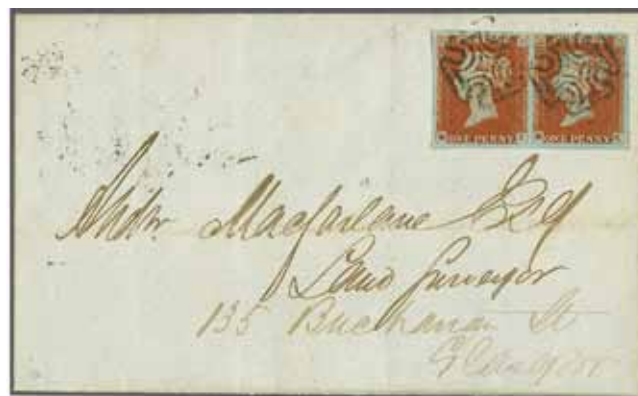 ONE PENNY ONE PENNY
Andw Macfarlane Esq
Land Surveyor
135 Buchanan St
Glasgow